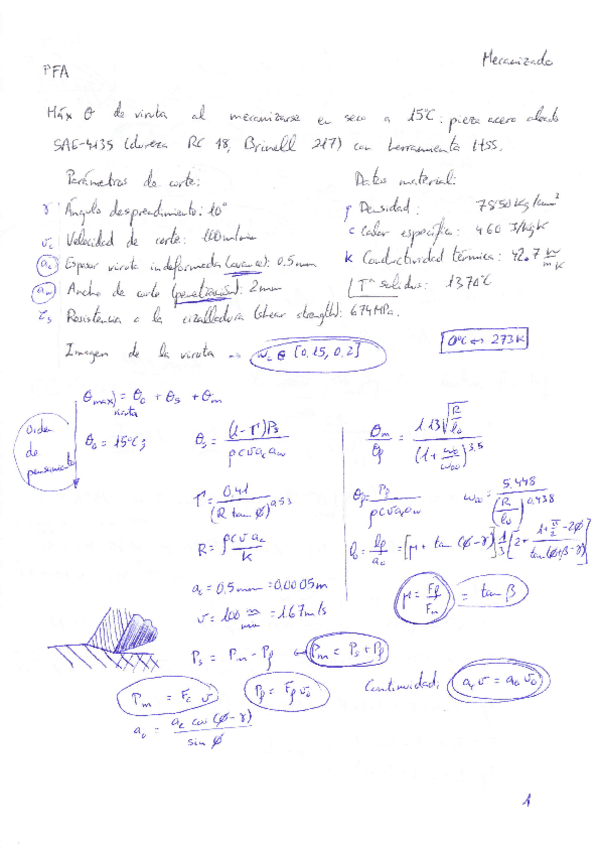 Mecanizado
PFA
Máx θ de viruta al mecanizarse en seco a 15°C: pieza acero aleado
SAE-4135 (dureza RC 18, Brinell 217) con herramienta HSS.
Parámetros de corte:
γ Ángulo desprendimiento: 10°
v_c Velocidad de corte: 100 m/min
a_c Espesor viruta indeformada (avance): 0.5 mm
a_w Ancho de corte (penetración): 2 mm
τ_s Resistencia a la cizalladura (shear strength): 674 MPa.
Imagen de la viruta → w_0 ∈ [0.15, 0.2]
Datos material:
ρ Densidad: 7850 kg/m³
c Calor específico: 460 J/kgK
K Conductividad térmica: 42.7 W/mK
Tª solidus: 1370°C
0°C ↔ 273K
Orden de pensamiento
θ_max)viruta = θ_0 + θ_s + θ_m
θ_0 = 15°C;
θ_s = (1-Γ)P_s / ρ c v a_c a_w
Γ = 0.41 / (R tan φ)^0.53
R = ρ c v a_c / K
a_c = 0.5 mm = 0.0005 m
v = 100 m/min = 1.67 m/s
P_s = P_m - P_f ← P_m = P_s + P_f
P_m = F_c v
P_f = F_f v_0
a_0 = a_c cos(φ-γ) / sin φ
θ_m / θ_f = 1.13 √(R/l_0) / (1 + w_0/w_00)^3.5
θ_f = P_f / ρ c v a_c a_w
w_00 = 5.448 / (R/l_0)^0.438
l_0 = l_f / a_0 = [μ + tan(φ-γ)] 1/3 [2 + (1 + π/2 - 2φ) / tan(φ+β-γ)]
μ = F_f / F_n = tan β
Continuidad: a_c v = a_0 v_0
1